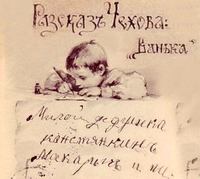 Разсказъ Чехова:
„Ванька"
Милой дедушка
канстянкинъ
макарычъ и пи.